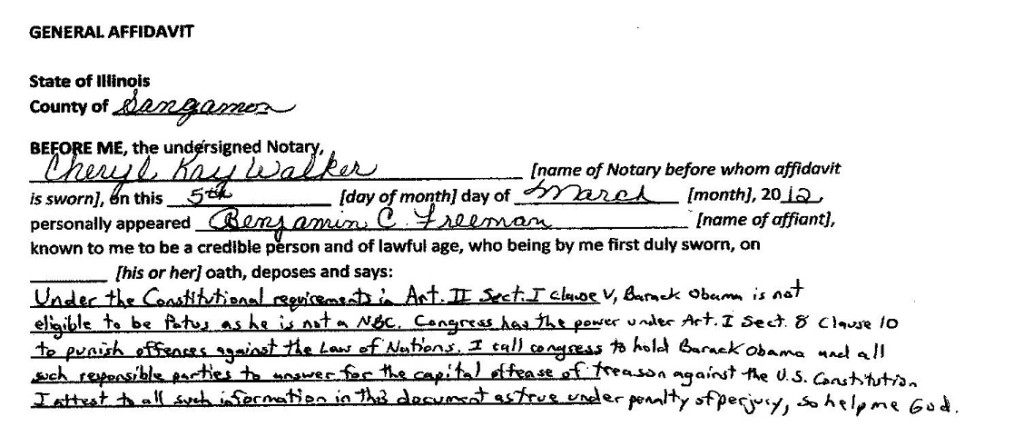 GENERAL AFFIDAVIT
State of Illinois
County of Sangamon
BEFORE ME, the undersigned Notary,
Cheryl Kay Walker [name of Notary before whom affidavit
is sworn], on this 5th [day of month] day of March [month], 2012,
personally appeared Benjamin C. Freeman [name of affiant],
known to me to be a credible person and of lawful age, who being by me first duly sworn, on
[his or her] oath, deposes and says:
Under the Constitutional requirements in Art. II Sect. I clause V, Barack Obama is not
eligible to be Potus as he is not a NBC. Congress has the power under Art. I Sect. 8 Clause 10
to punish offences against the Law of Nations. I call congress to hold Barack Obama and all
such responsible parties to answer for the capital offense of treason against the U.S. Constitution
I attest to all such information in this document as true under penalty of perjury, so help me God.